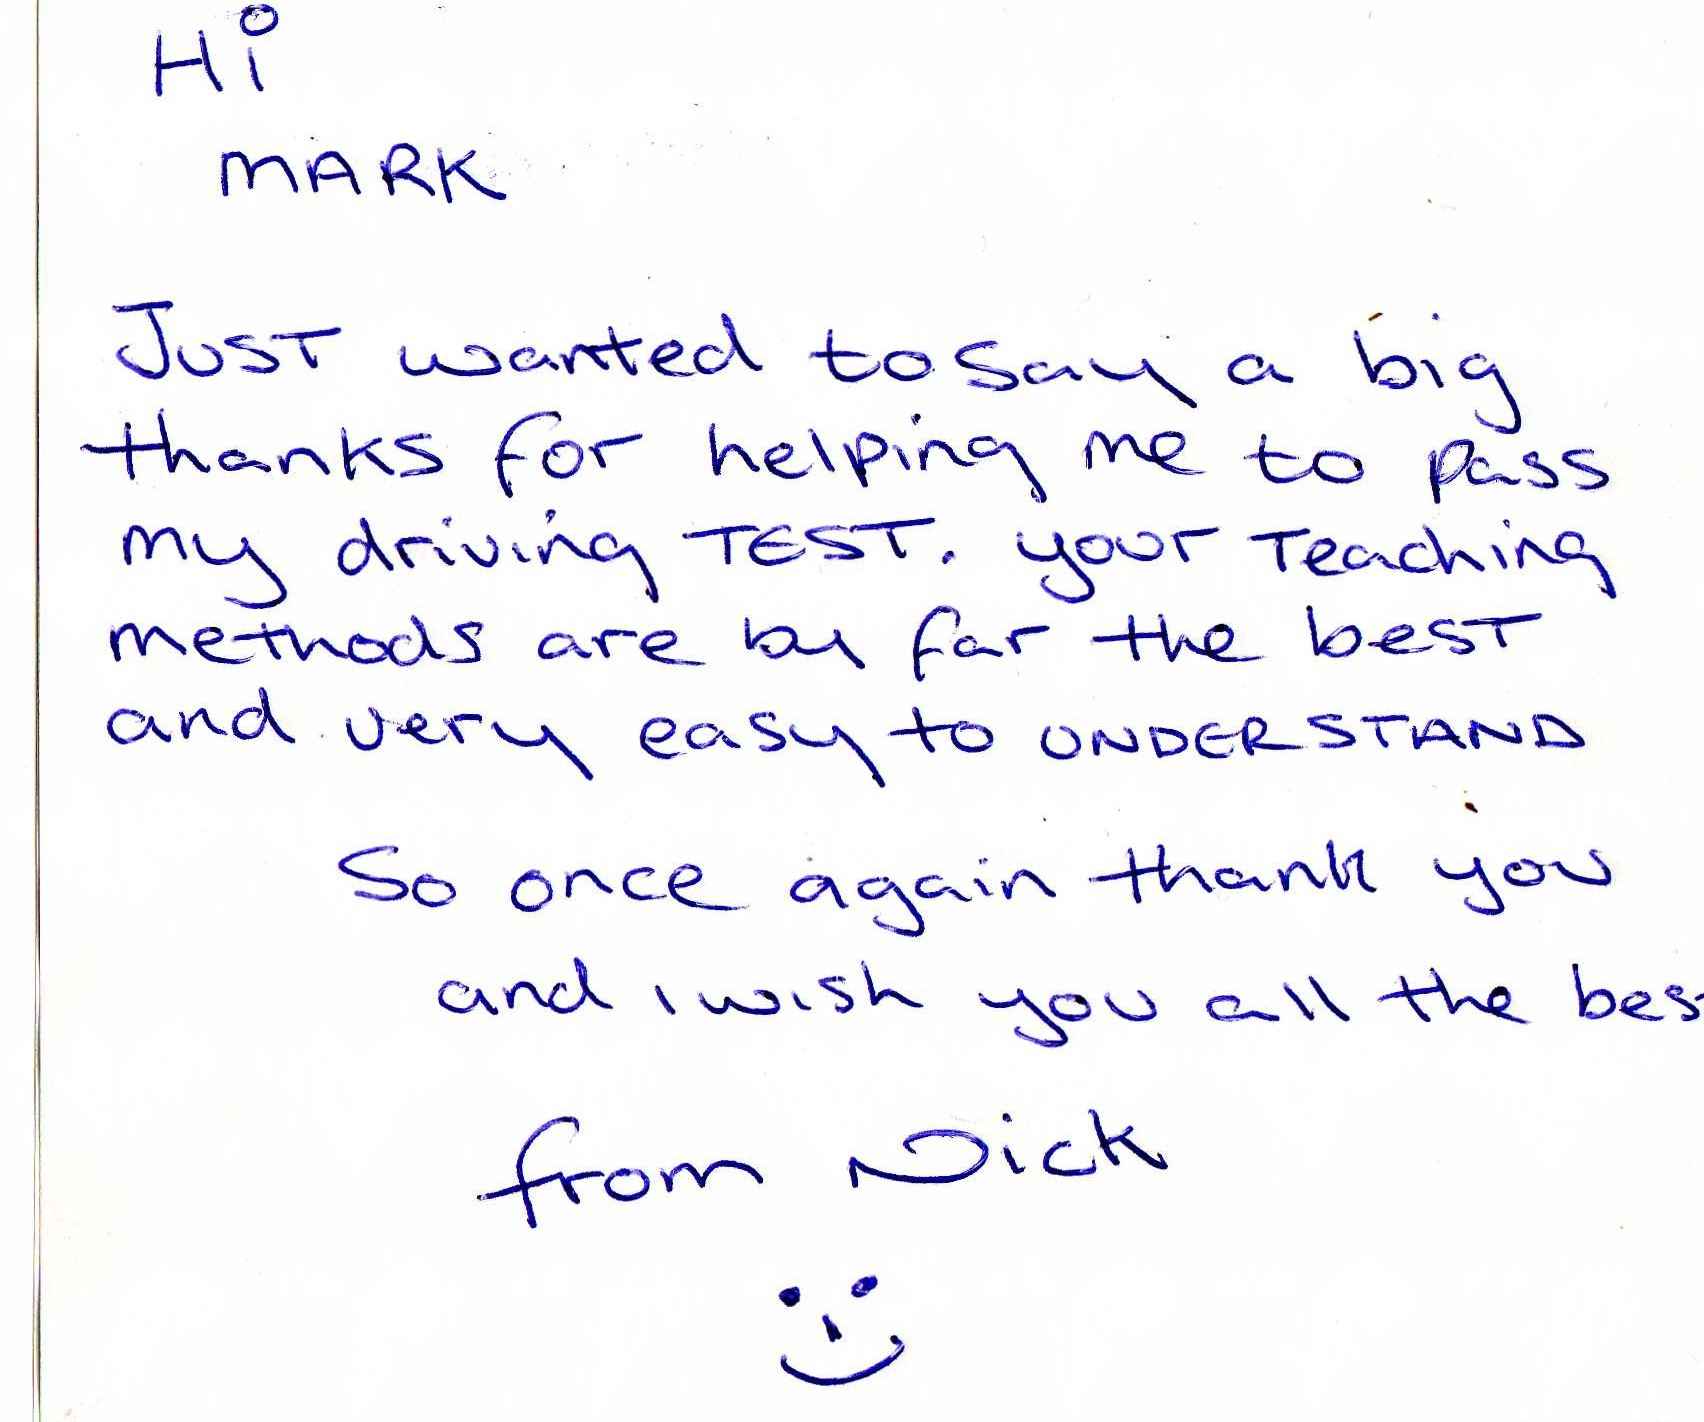 Hi
MARK
JUST wanted to say a big
thanks for helping me to pass
my driving TEST. your Teaching
methods are by far the best
and very easy to UNDERSTAND
So once again thank you
and i wish you all the bes
from Nick